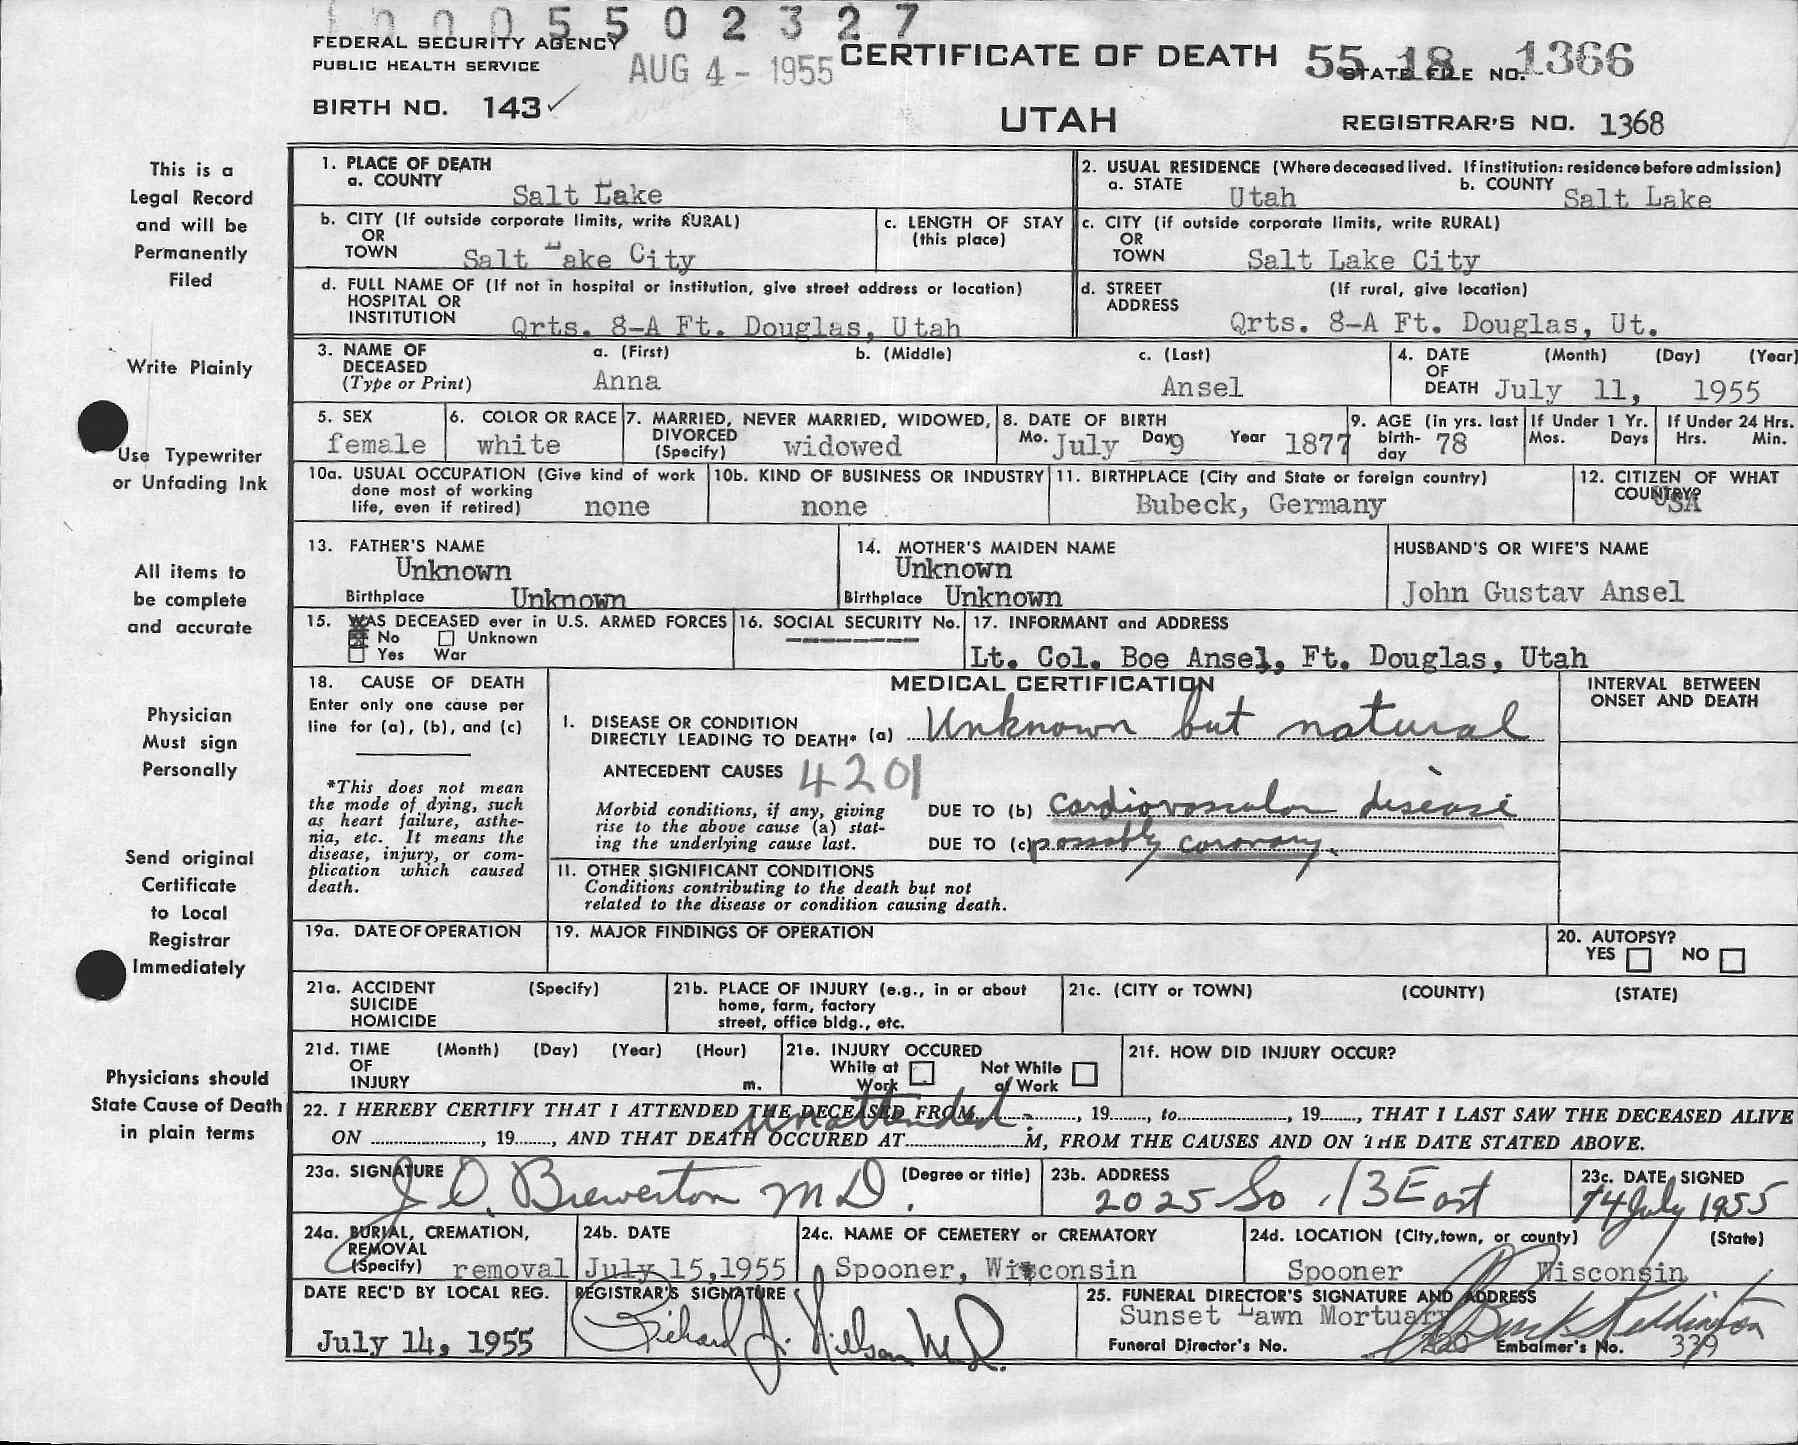 1000 5 5 0 2 3 2 7
FEDERAL SECURITY AGENCY
PUBLIC HEALTH SERVICE
AUG 4 - 1955
CERTIFICATE OF DEATH
55 18 1366
STATE FILE NO.
BIRTH NO. 143✓
UTAH
REGISTRAR'S NO. 1368
This is a
Legal Record
and will be
Permanently
Filed
Write Plainly
Use Typewriter
or Unfading Ink
All items to
be complete
and accurate
Physician
Must sign
Personally
Send original
Certificate
to Local
Registrar
Immediately
Physicians should
State Cause of Death
in plain terms
1. PLACE OF DEATH
a. COUNTY Salt Lake
2. USUAL RESIDENCE (Where deceased lived. If institution: residence before admission)
a. STATE Utah b. COUNTY Salt Lake
b. CITY (If outside corporate limits, write RURAL)
OR
TOWN Salt Lake City
c. LENGTH OF STAY
(this place)
c. CITY (if outside corporate limits, write RURAL)
OR
TOWN Salt Lake City
d. FULL NAME OF (If not in hospital or institution, give street address or location)
HOSPITAL OR
INSTITUTION Qrts. 8-A Ft. Douglas, Utah
d. STREET (If rural, give location)
ADDRESS Qrts. 8-A Ft. Douglas, Ut.
3. NAME OF a. (First) b. (Middle) c. (Last)
DECEASED
(Type or Print) Anna Ansel
4. DATE (Month) (Day) (Year)
OF
DEATH July 11, 1955
5. SEX
female
6. COLOR OR RACE
white
7. MARRIED, NEVER MARRIED, WIDOWED,
DIVORCED
(Specify) widowed
8. DATE OF BIRTH
Mo. July Day 9 Year 1877
9. AGE (in yrs. last
birth-
day 78
If Under 1 Yr.
Mos. Days
If Under 24 Hrs.
Hrs. Min.
10a. USUAL OCCUPATION (Give kind of work
done most of working
life, even if retired) none
10b. KIND OF BUSINESS OR INDUSTRY
none
11. BIRTHPLACE (City and State or foreign country)
Bubeck, Germany
12. CITIZEN OF WHAT
COUNTRY?
USA
13. FATHER'S NAME
Unknown
Birthplace Unknown
14. MOTHER'S MAIDEN NAME
Unknown
Birthplace Unknown
HUSBAND'S OR WIFE'S NAME
John Gustav Ansel
15. WAS DECEASED ever in U.S. ARMED FORCES
No Unknown
Yes War
16. SOCIAL SECURITY No.
---------
17. INFORMANT and ADDRESS
Lt. Col. Boe Ansel, Ft. Douglas, Utah
18. CAUSE OF DEATH
Enter only one cause per
line for (a), (b), and (c)
*This does not mean
the mode of dying, such
as heart failure, asthe-
nia, etc. It means the
disease, injury, or com-
plication which caused
death.
MEDICAL CERTIFICATION
I. DISEASE OR CONDITION
DIRECTLY LEADING TO DEATH* (a) Unknown but natural
ANTECEDENT CAUSES 4201
Morbid conditions, if any, giving
rise to the above cause (a) stat-
ing the underlying cause last.
DUE TO (b) Cardiovascular disease
DUE TO (c) possibly coronary.
11. OTHER SIGNIFICANT CONDITIONS
Conditions contributing to the death but not
related to the disease or condition causing death.
INTERVAL BETWEEN
ONSET AND DEATH
19a. DATE OF OPERATION
19. MAJOR FINDINGS OF OPERATION
20. AUTOPSY?
YES NO
21a. ACCIDENT (Specify)
SUICIDE
HOMICIDE
21b. PLACE OF INJURY (e.g., in or about
home, farm, factory
street, office bldg., etc.
21c. (CITY or TOWN) (COUNTY) (STATE)
21d. TIME (Month) (Day) (Year) (Hour)
OF
INJURY m.
21e. INJURY OCCURED
While at Work
Not While at Work
21f. HOW DID INJURY OCCUR?
22. I HEREBY CERTIFY THAT I ATTENDED THE DECEASED FROM ........, 19......, to............, 19......, THAT I LAST SAW THE DECEASED ALIVE
unattended.
ON ............, 19......, AND THAT DEATH OCCURED AT............M, FROM THE CAUSES AND ON THE DATE STATED ABOVE.
23a. SIGNATURE (Degree or title)
J O. Brewerton MD.
23b. ADDRESS
2025 So. 13 East
23c. DATE SIGNED
14 July 1955
24a. BURIAL, CREMATION,
REMOVAL
(Specify) removal
24b. DATE
July 15, 1955
24c. NAME OF CEMETERY or CREMATORY
Spooner, Wisconsin
24d. LOCATION (City, town, or county) (State)
Spooner Wisconsin
DATE REC'D BY LOCAL REG.
July 14, 1955
REGISTRAR'S SIGNATURE
Richard J. Nillson M.D.
25. FUNERAL DIRECTOR'S SIGNATURE AND ADDRESS
Sunset Lawn Mortuary
Funeral Director's No. 220 Embalmer's No. 339